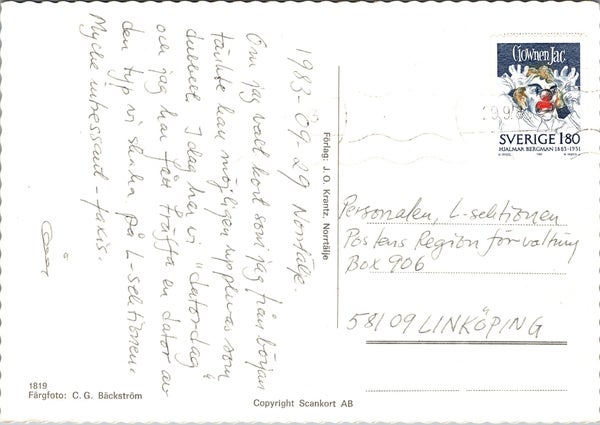 1983-09-29 Norrtälje.
Om jag valt kort som jag från början
tänkte kan möjligen upplevas som
dubbel. I dag har vi "datordag"
och jag har fått träffa en dator av
den typ vi skulle på L-sektionen.
Mycke intressant - faxis.
Clownen Jac
29.9.8
SVERIGE 180
HJALMAR BERGMAN 1883-1931
Förlag: J. O. Krantz, Norrtälje
Personalen, L-sektionen
Postens Region förvaltning
Box 906
58109 LINKÖPING
1819
Färgfoto: C. G. Bäckström
Copyright Scankort AB